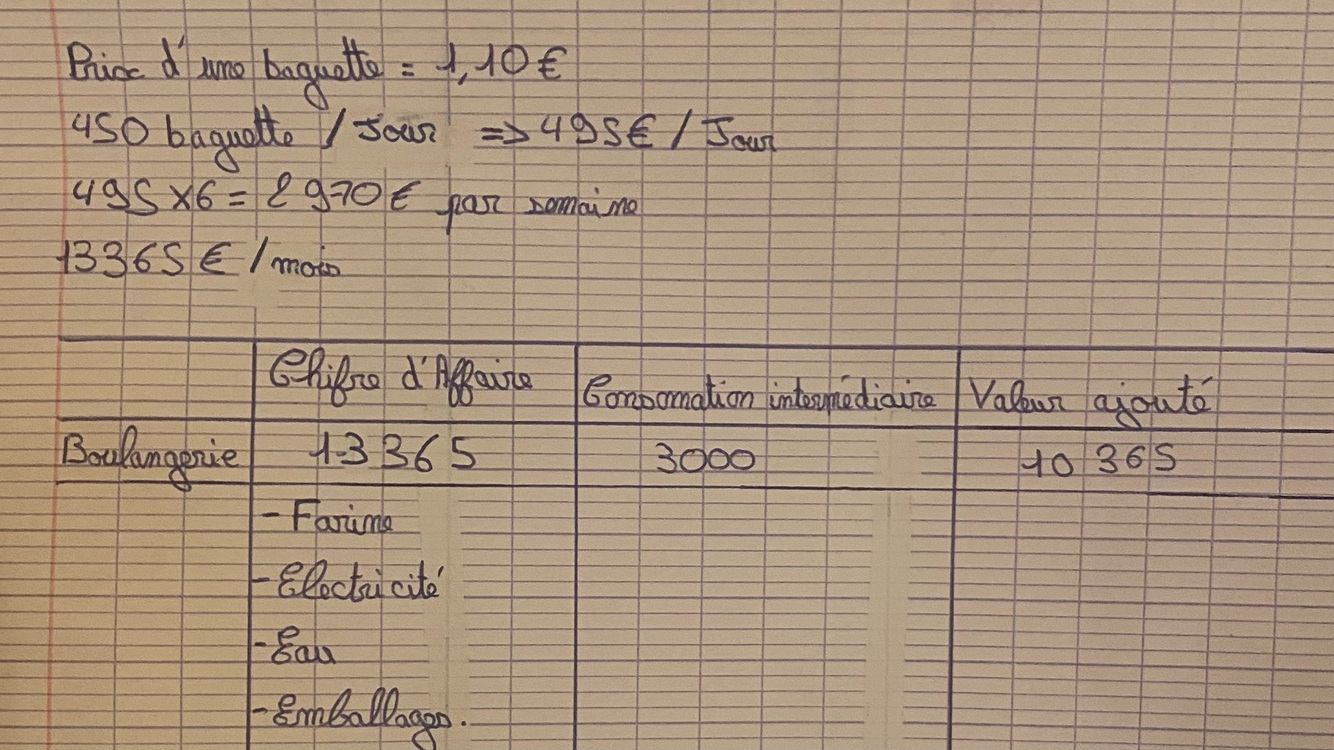 Prix d'une baguette = 1,10€
450 baguette / Jour => 495€ / Jour
495 x6 = 2 970€ par semaine
13365 € / mois
Chifre d'Affaire Consomation intermédiaire Valeur ajouté
Boulangerie 13 365 3000 10 365
- Farine
- Electricité
- Eau
- Emballages.